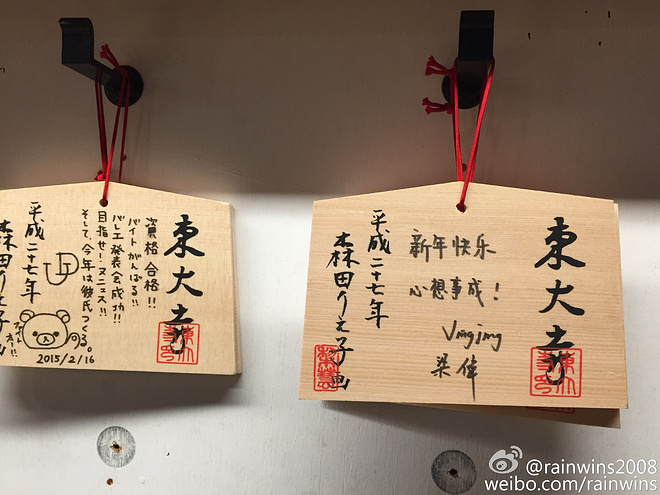 東大寺
資格合格!!
バイトがんばる!!
バレエ発表会成功!!
目指せ!ヌニェス!!
そして、今年は彼氏つくる。
平成二十七年
森田りえ子画
2015/2/16
東大寺
新年快乐
心想事成!
Jingjing
梁伟
平成二十七年
森田りえ子画
@rainwins2008
weibo.com/rainwins